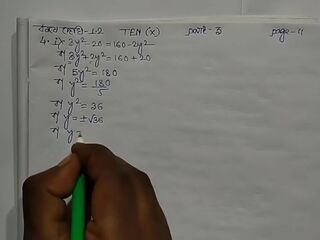 কষে দেখি-1.2 TEN (X) part-3 page-11
4. i) 3y²-20=160-2y²
বা 3y²+2y²=160+20
বা 5y²=180
বা y²=180/5
বা y²=36
বা y=±√36
বা y=